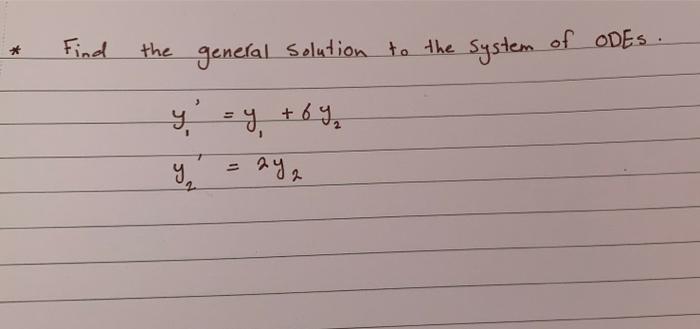 * Find the general solution to the system of ODEs.
y₁' = y₁ + 6y₂
y₂' = 2y₂